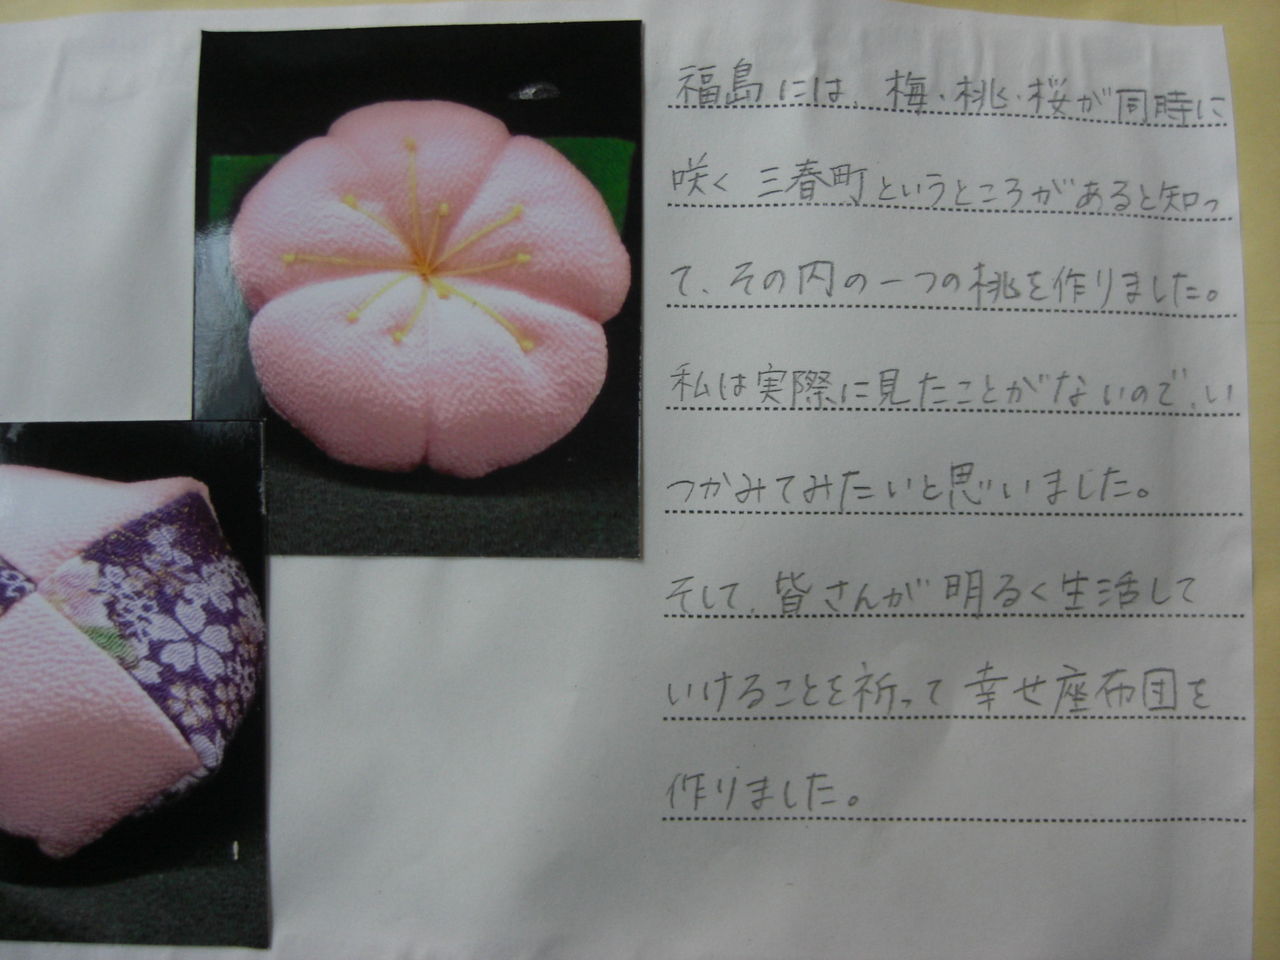 福島には、梅・桃・桜が同時に
咲く 三春町というところがあると知っ
て、その内の一つの桃を作りました。
私は実際に見たことがないので、い
つかみてみたいと思いました。
そして、皆さんが明るく生活して
いけることを祈って幸せ座布団を
作りました。